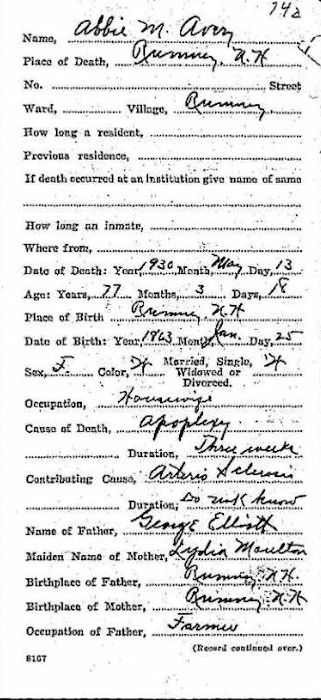 742
Name, Abbie M. Avery
Place of Death, Rumney, N.H
No. Street
Ward, Village, Rumney
How long a resident,
Previous residence,
If death occurred at an institution give name of same
How long an inmate,
Where from,
Date of Death: Year, 1930 Month, May Day, 13
Age: Years, 77 Months, 3 Days, 18
Place of Birth Rumney N.H
Date of Birth: Year, 1863 Month, Jan. Day, 25
Sex, F. Color, W Married, Single, Widowed or Divorced. W
Occupation, Housewife
Cause of Death, Apoplexy
Duration, Three weeks
Contributing Cause, Arterio Sclerosis
Duration, Do not know
Name of Father, George Elliott
Maiden Name of Mother, Lydia Moulton
Birthplace of Father, Rumney N.H.
Birthplace of Mother, Rumney N.H.
Occupation of Father, Farmer
(Record continued over.)
8167